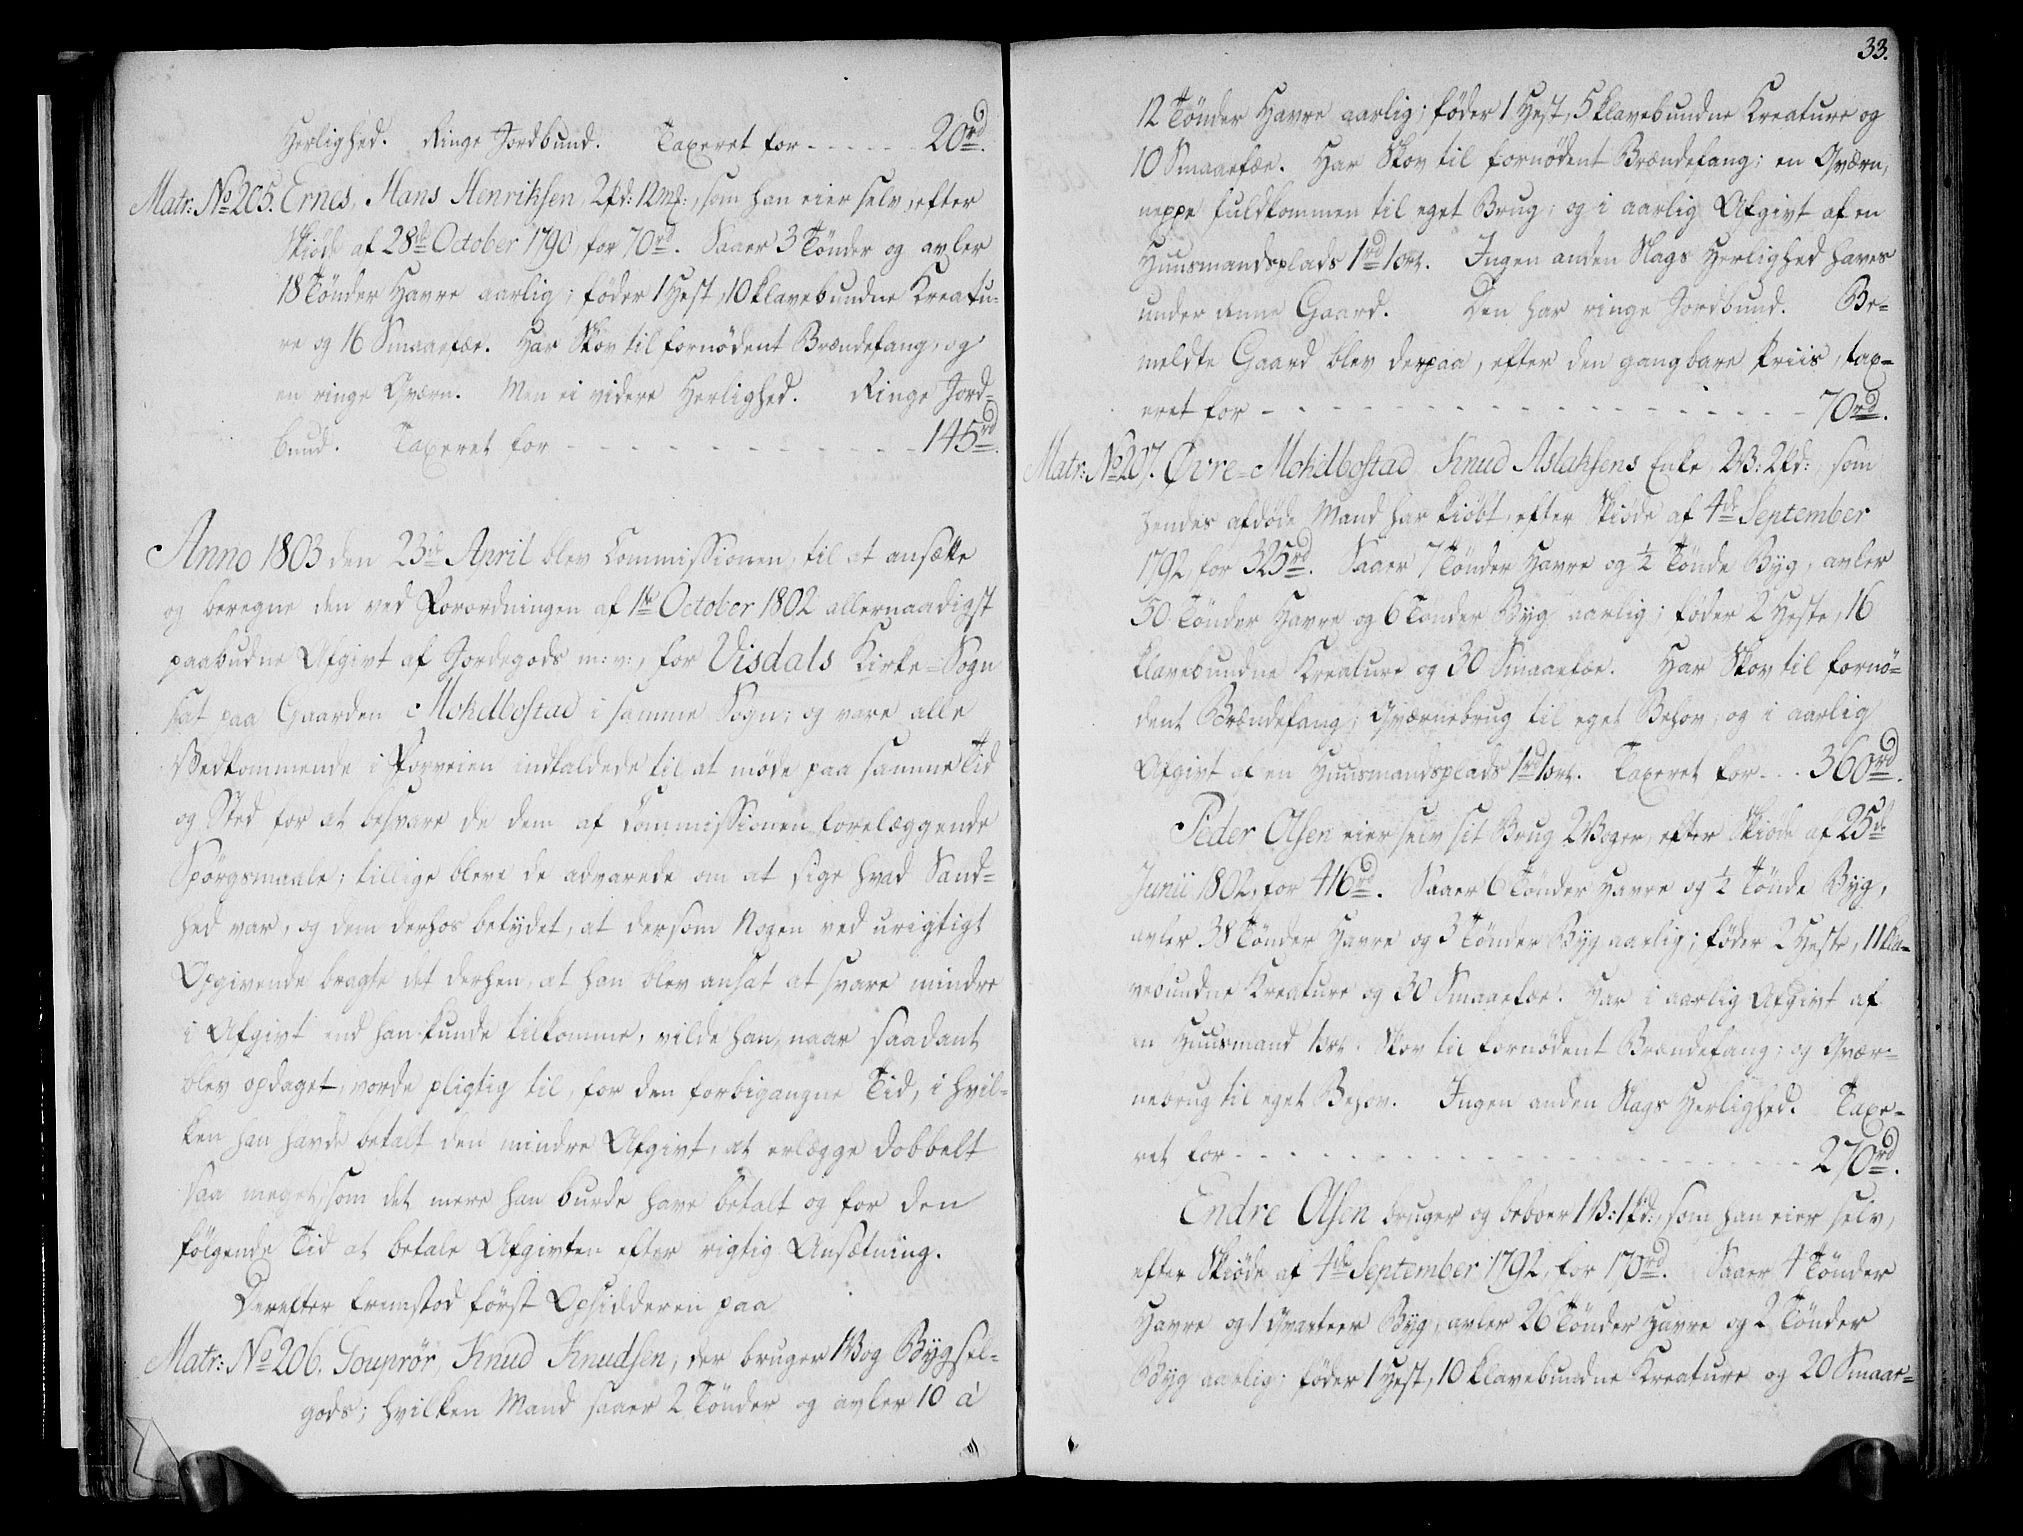 Herlighed. Ringe Jordbund. Taxeret for - - - - - - 20rd.
Matr: No 205. Ernes, Hans Henriksen, 2 pd: 12 mk:, som han eier selv, efter
Skiøde af 28de October 1790, for 70rd. Saaer 3 Tønder og avler
18 Tønder Havre aarlig; føder 1 Hest, 10 klavebundne Kreatu-
re og 16 Smaaefæe. Har Skov til fornødent Brændefang, og
en ringe Qværn. Men ei videre Herlighed. Ringe Jord-
bund. Taxeret for - - - - - - - - - - - - 145rd.
Anno 1803 den 23de April blev Commissionen, til at ansætte
og beregne den ved Forordningen af 1ste October 1802 allernaadigst
paabudne Afgivt af Jordegods m: v:, for Visdals Kirke-Sogn
sat paa Gaarden Mokelbostad i samme Sogn; og vare alle
Vedkommende i Forveien indkaldede til at møde paa samme Tid
og Sted for at besvare de dem af Commissionen forelæggende
Spørgsmaale; tillige bleve de advarede om at sige hvad Sand-
hed var, og dem derhos betydet, at dersom Nogen ved urigtigt
Opgivende bragte det derhen, at han blev ansat at svare mindre
i Afgivt end han kunde tilkomme, vilde han, naar saadant
blev opdaget, vorde pligtig til, for den forbigangne Tid, i hvil-
ken han havde betalt den mindre Afgivt, at erlægge dobbelt
saa meget, som det mere han burde have betalt og for den
følgende Tid at betale Afgivten efter rigtig Ansætning.
Derefter fremstod først Opsidderen paa
Matr: No 206. Gouprør, Knud Knudsen, der bruger 1 Vog Bygsel-
gods; hvilken Mand saaer 2 Tønder og avler 10 à
33.
12 Tønder Havre aarlig; føder 1 Hest, 5 klavebundne Kreature og
10 Smaaefæe. Har Skov til fornødent Brændefang; en Qværn,
neppe fuldkommen til eget Brug; og i aarlig Afgivt af en
Huusmandsplads 1rd 1 ort. Ingen anden Slags Herlighed haves
under denne Gaard. Den har ringe Jordbund. Be-
meldte Gaard blev derpaa, efter den gangbare Priis, tax-
eret for - - - - - - - - - - - - - - - - - - 70rd.
Matr: No 207. Øvre-Mokelbostad, Knud Aslaksens Enke, 2 V: 2 pd:, som
hendes afdøde Mand har kiøbt, efter Skiøde af 4de September
1792, for 325rd. Saaer 7 Tønder Havre og ½ Tønde Byg, avler
50 Tønder Havre og 6 Tønder Byg aarlig; føder 2 Heste, 16
klavebundne Kreature og 30 Smaaefæe. Har Skov til fornø-
dent Brændefang; Qværnebrug til eget Behov; og i aarlig
Afgivt af en Huusmandsplads 1rd 1 ort. Taxeret for - - - 360rd.
Peder Olsen eier selv sit Brug 2 Voger, efter Skiøde af 25de
Junii 1802, for 416rd. Saaer 6 Tønder Havre og ½ Tønde Byg,
avler 38 Tønder Havre og 3 Tønder Byg aarlig; føder 2 Heste, 11 kla-
vebundne Kreature og 30 Smaaefæe. Har i aarlig Afgivt af
en Huusmand 1 ort. Skov til fornødent Brændefang; og Qvær-
nebrug til eget Behov. Ingen anden Slags Herlighed. Taxe-
ret for - - - - - - - - - - - - - - - - - - - 270rd.
Endre Olsen bruger og beboer 1 V: 1 pd:, som han eier selv,
efter Skiøde af 4de September 1792, for 170rd. Saaer 4 Tønder
Havre og 1 Qvarteer Byg, avler 26 Tønder Havre og 2 Tønder
Byg aarlig; føder 1 Hest, 10 klavebundne Kreature og 20 Smaae-